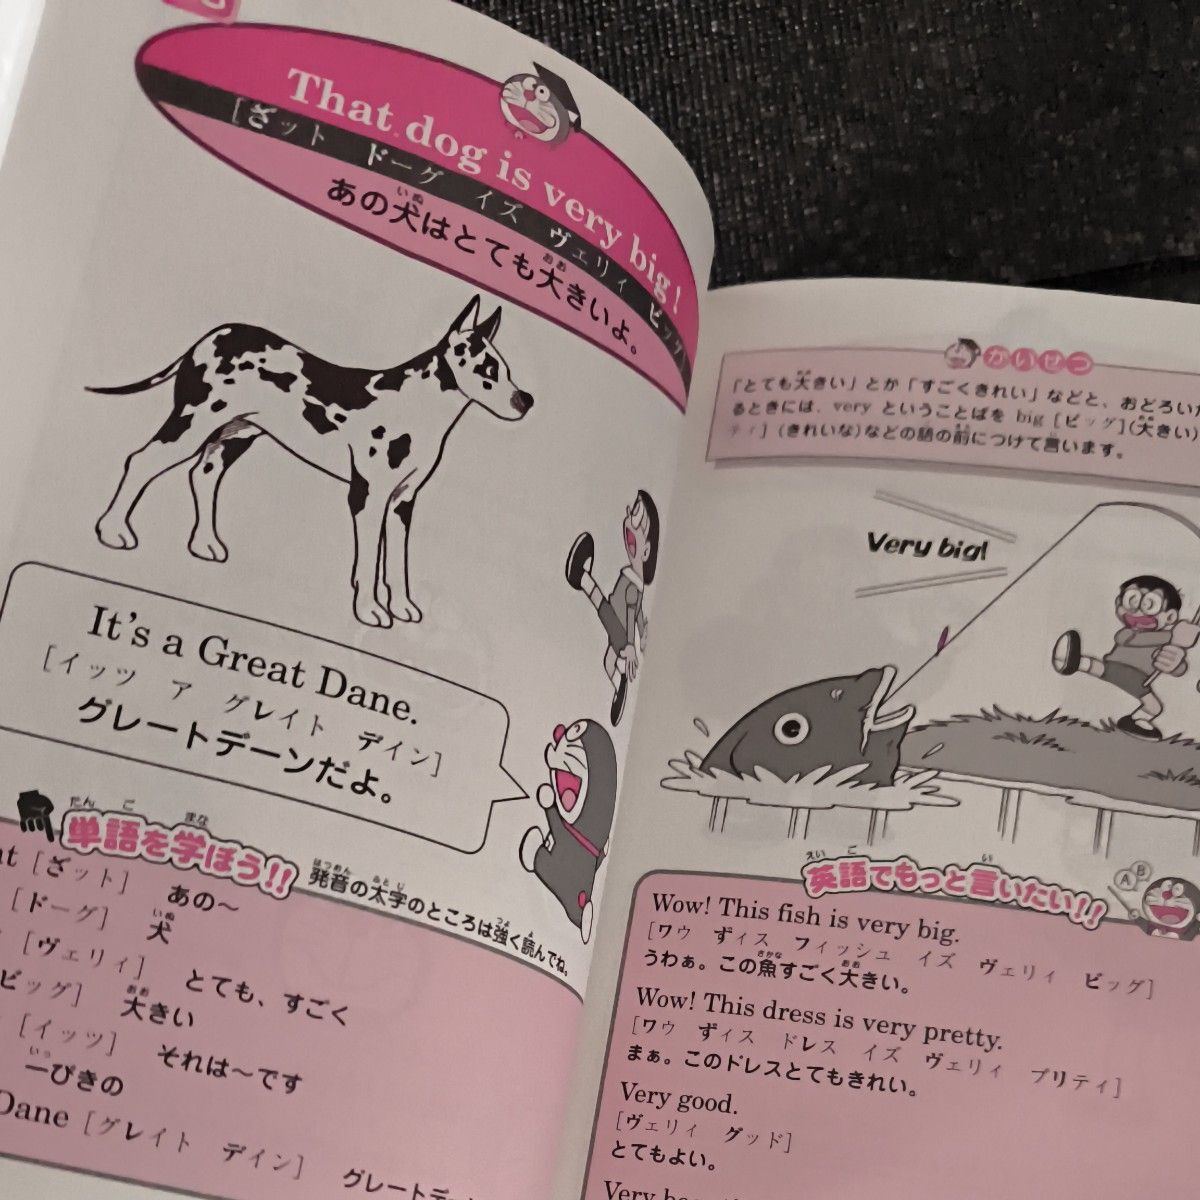 That dog is very big!
[ざット ドーグ イズ ヴェリィ ビッグ]
あの犬はとても大きいよ。
いぬ
おお
It's a Great Dane.
[イッツ ア グレイト デイン]
グレートデーンだよ。
たんご まな
単語を学ぼう!!
はつおん ふとじ つよ よ
発音の太字のところは強く読んでね。
[ざット] あの～
いぬ
[ドーグ] 犬
[ヴェリィ] とても、すごく
おお
ビッグ] 大きい
[イッツ] それは～です
いっ
一ぴきの
Dane [グレイト デイン]
かいせつ
「とても大きい」とか「すごくきれい」などと、おどろいた
るときには、very ということばを big [ビッグ](大きい)
ティ](きれいな)などの語の前につけて言います。
Very big!
えいご い
英語でもっと言いたい!!
A B
Wow! This fish is very big.
[ワウ ずィス フィッシュ イズ ヴェリィ ビッグ]
さかな おお
うわぁ。この魚すごく大きい。
Wow! This dress is very pretty.
[ワウ ずィス ドレス イズ ヴェリィ プリティ]
まぁ。このドレスとてもきれい。
Very good.
[ヴェリィ グッド]
とてもよい。
Very